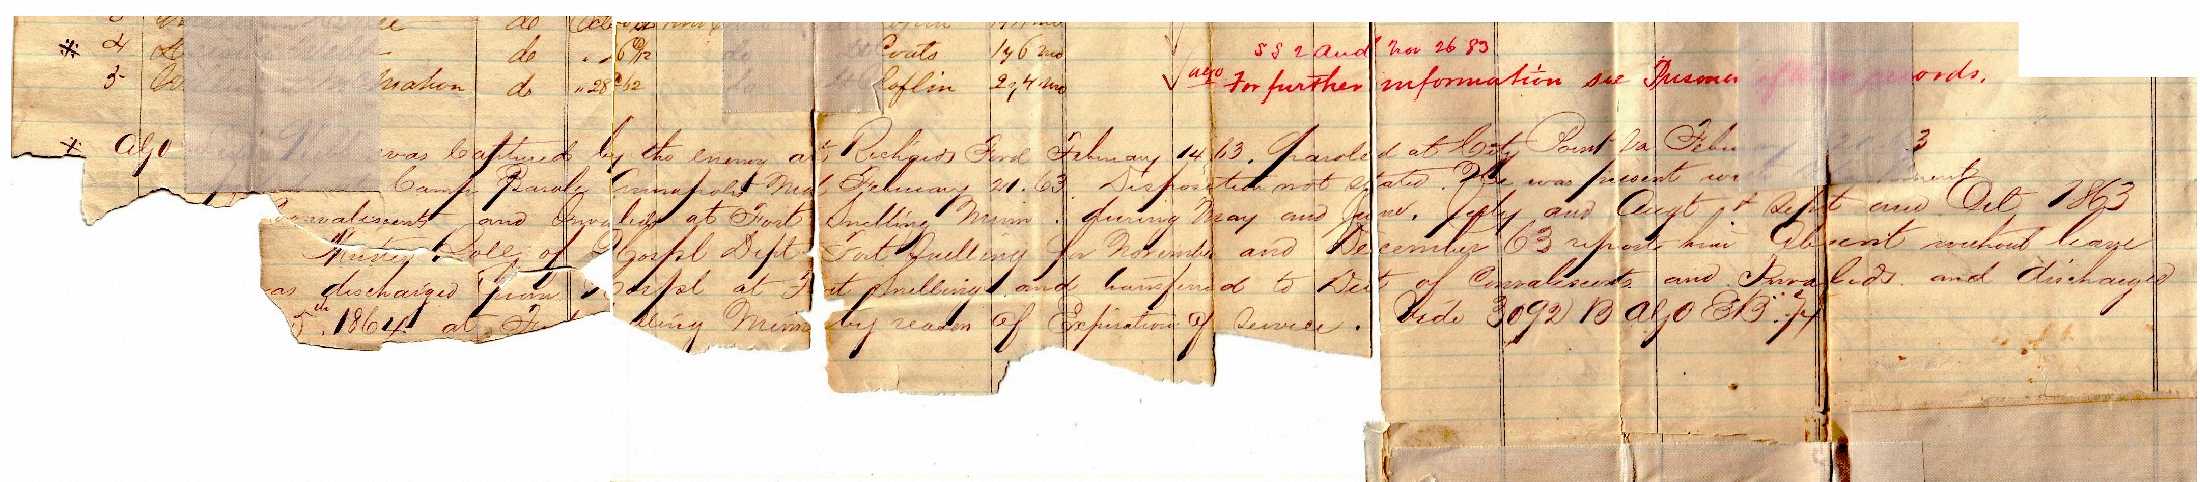 de
* 4 de " 6 9/12 do Coats 1 y 6 mo S S 2 Aud Nov 26 83
5 mation de " 28 9/12 Loflin 2 y 4 mo ago For further information see Prisoner of records.
* Ago was Captured by the enemy at Richards Ford February 14 63. Paroled at City Point Va Febru 3
Camp Parole Annapolis Md February 21. 63 Disposition not stated. He was present
Convalescent and Invalids at Fort Snelling Minn. during May and June. July and Augt Sept and Oct 1863
Muster Roll of Hospl Dept Fort Snelling for November and December 63 report him Absent without leave
as discharged from Hospl at Fort Snelling and transferred to Det of Convalescents and Invalids. and discharged
5th. 1864 at Fort lling Minn by reason of Expiration of service. Vide 3092 B Ago EB